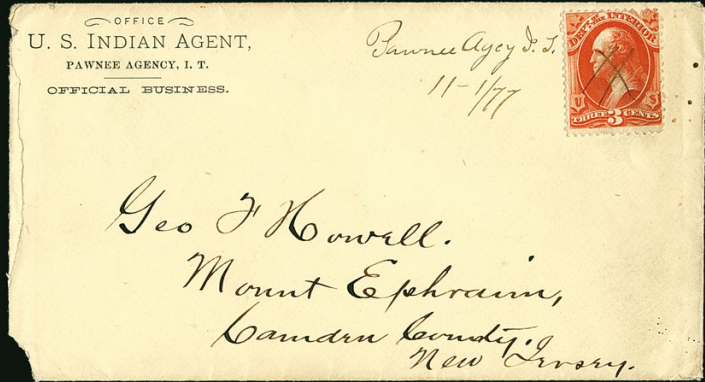 OFFICE
U. S. INDIAN AGENT,
PAWNEE AGENCY, I. T.
OFFICIAL BUSINESS.
Pawnee Agcy I. T.
11-1/77
DEPT. OF THE INTERIOR
U S
THREE 3 CENTS
Geo F Howell.
Mount Ephraim,
Camden County.
New Jersey.